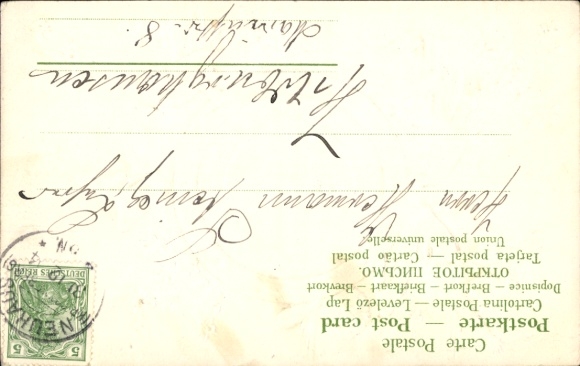 Carte Postale
Postkarte — Post card
Cartolina Postale — Levelező Lap
Dopisnice — Brefkort — Briefkaart — Brevkort
ОТКРЫТОЕ ПИСЬМО.
Tarjeta postal — Cartão postal
Union postale universelle
5 5
DEUTSCHES REICH
Herrn Hermann
Hildburghausen
8.